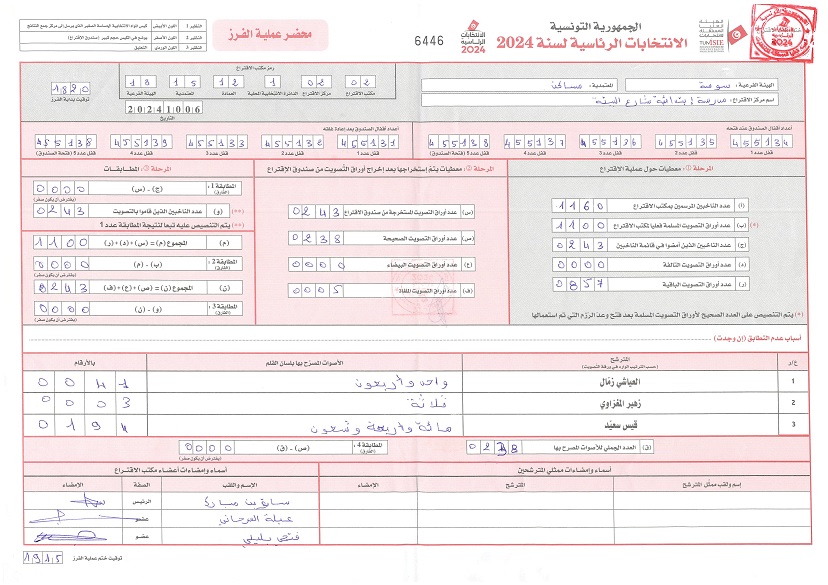 الجمهورية التونسية
الانتخابات الرئاسية لسنة 2024
الهيئة العليا المستقلة للانتخابات
TUNISIE
الانتخابات الرئاسية 2024
6446
محضر عملية الفرز
النظير 1 اللون الأبيض
النظير 2 اللون الأصفر
النظير 3 اللون الوردي التعليق
الهيئة الفرعية: سوسة المعتمدية: مساكن
اسم مركز الاقتراع: مدرسة ابتدائية شارع البيئة
رمز مكتب الاقتراع
02 02 1 12 15 18
مكتب الاقتراع مركز الاقتراع الدائرة الانتخابية المحلية العمادة المعتمدية الهيئة الفرعية
1820
توقيت بداية الفرز
20241006
التاريخ
أعداد أقفال الصندوق عند فتحه
455134 455135 455136 455137 455138
قفل عدد 1 قفل عدد 2 قفل عدد 3 قفل عدد 4 قفل عدد 5 (فتحة الصندوق)
أعداد أقفال الصندوق بعد إعادة غلقه
455131 455132 455133 455139 455138
قفل عدد 1 قفل عدد 2 قفل عدد 3 قفل عدد 4 قفل عدد 5 (فتحة الصندوق)
المرحلة 1: معطيات حول عملية الاقتراع
(أ) عدد الناخبين المرسمين بمكتب الاقتراع 1160
(*) (ب) عدد أوراق التصويت المسلمة فعليا لمكتب الاقتراع 1100
(ج) عدد الناخبين الذين أمضوا في قائمة الناخبين 0243
(د) عدد أوراق التصويت التالفة 0000
(ر) عدد أوراق التصويت الباقية 0857
(*) يتم التنصيص على العدد الصحيح لأوراق التصويت المسلمة بعد فتح وعد الرزم التي تم استعمالها
المرحلة 2: معطيات يتم إستخراجها بعد إخراج أوراق التصويت من صندوق الإقتراع
(س) عدد أوراق التصويت المستخرجة من صندوق الاقتراع 0243
(ص) عدد أوراق التصويت الصحيحة 0238
(ع) عدد أوراق التصويت البيضاء 0000
(ف) عدد أوراق التصويت الملغاة 0005
المرحلة 3: المطابقات
المطابقة 1: (الفارق) (ج) - (س) 0000
(يفترض أن يكون صفر)
(**) (و) عدد الناخبين الذين قاموا بالتصويت 0243
(**) يتم التنصيص عليه تبعا لنتيجة المطابقة عدد 1
(م) المجموع (م) = (س) + (د) + (ر) 1100
المطابقة 2: (الفارق) (ب) - (م) 0000
(يفترض أن يكون صفر)
(ن) المجموع (ن) = (ص) + (ع) + (ف) 0243
المطابقة 3: (الفارق) (و) - (ن) 0000
(يفترض أن يكون صفر)
أسباب عدم التطابق (إن وجدت)
ع/ر المترشح الأصوات المصرّح بها بلسان القلم بالأرقام
(حسب الترتيب الوارد في ورقة التصويت)
1 العياشي زمّال واحد وأربعون 0041
2 زهير المغزاوي ثلاثة 0003
3 قيس سعيّد مائة وأربعة وتسعون 0194
(ق) العدد الجملي للأصوات المصرح بها 0238
(ص) - (ق) 0000 المطابقة 4: (الفارق)
(يفترض أن يكون صفر)
أسماء وإمضاءات ممثلي المترشحين
إسم ولقب ممثل المترشح المترشح الإمضاء
أسماء وإمضاءات أعضاء مكتب الاقتراع
الإسم واللقب الصفة الإمضاء
الرئيس
عضو
عضو
توقيت ختم عملية الفرز 1915